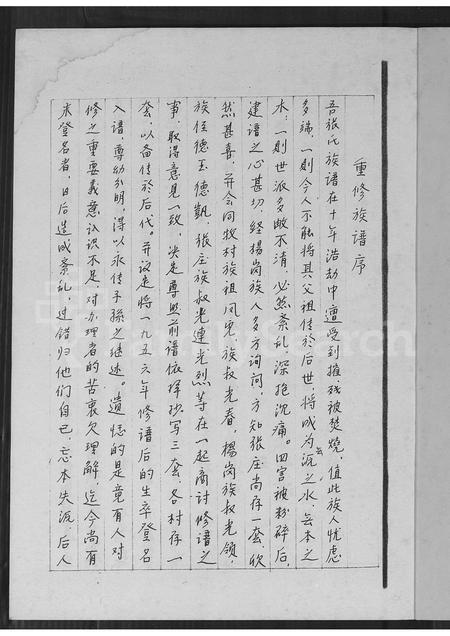 重修族谱序
吾张氏族谱在十年浩劫中遭受到摧残被焚烧，值此族人忧虑
多端，一则今人不能将其父祖传於后世，将成为无沅之水，无本之
木；一则世派多敢不清，必然紊乱，深抱沉痛。四害被粉碎后，
建谱之心甚切，经杨岗族人多方询问，方知张庄尚存一套，欣
然甚喜，并会同牧村族祖风 族叔光春，楊岗族叔光领，
族侄德玉、德凱，张庄族叔光連光烈等在一起商讨修谱之
事，取得意见一致，决定尊照前谱依样抄写三套，各村存一
套，以备传於后代。并议定将一九五六年修谱后的生卒登名
入谱，尊幼分明，得以永传子孫之继述。遗憾的是竟有人对
修之重要義意认识不足，对办理者的苦衷欠理解，迄今尚有
未登名者，日后造成紊乱，过错归他们自己，忘本失沅，后人
FamilySearch